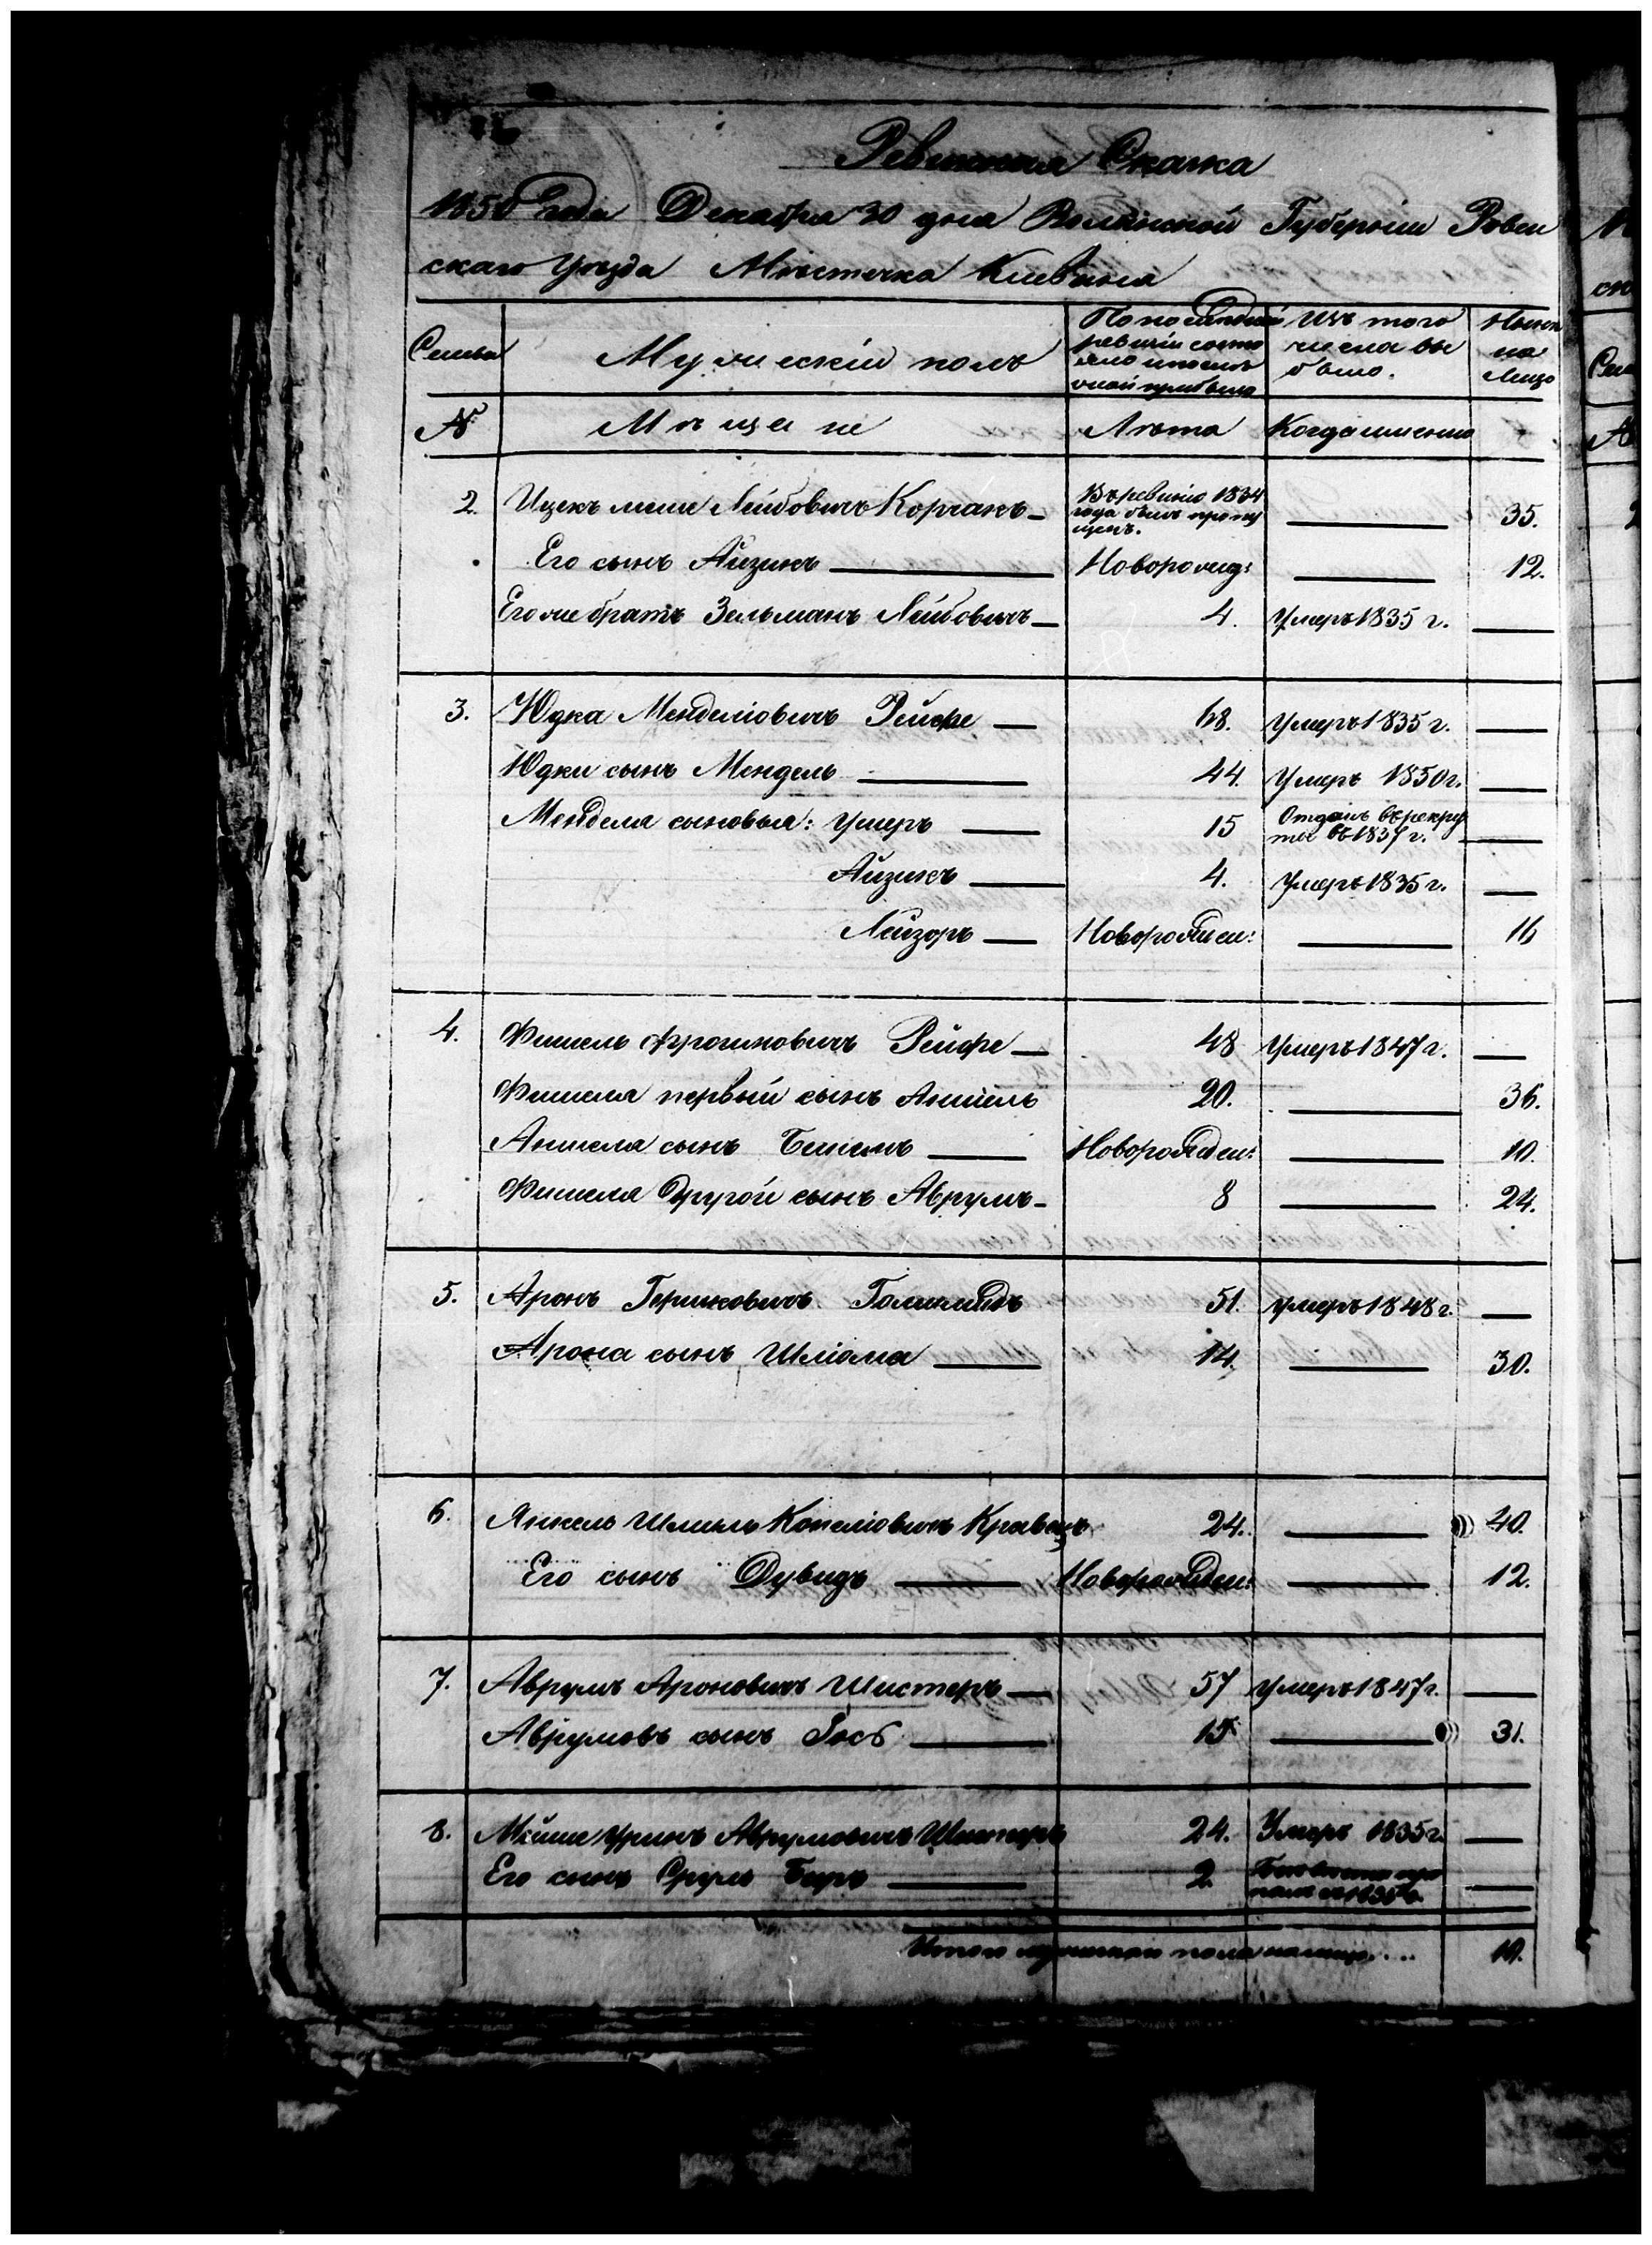 Ревизская Сказка
1850 Года Декабря 30 дня Волынской Губернии Ровен
скаго Уезда Мѣстечка Клеваня
Семьи
Мужескій полъ
По последней
ревизіи состо
яло и послѣ
оной прибыло
Изъ того
числа вы
было.
Нынѣ
на
лицо
№
Мѣщане
Лѣта
Когда именно
2. Ицекъ Лейбовичъ Корчакъ — Въ ревизію 1834 года былъ пропу щенъ. — 35.
Его сынъ Айзикъ — Новорожд: — 12.
Его же братъ Зельманъ Лейбовичъ — 4. Умеръ 1835 г. —
3. Юдка Менделіовичъ Рейфе — 68. Умеръ 1835 г. —
Юдки сынъ Мендель — 44. Умеръ 1850 г. —
Менделя сыновья: Ушеръ — 15 Отданъ въ рекру ты въ 1837 г. —
Айзикъ — 4. Умеръ 1835 г. —
Лейзоръ — Новорожден: — 16
4. Фишель Фроимовичъ Рейфе — 48 Умеръ 1847 г. —
Фишеля первый сынъ Аншель 20. — 36.
Аншеля сынъ — Новорожден: — 10.
Фишеля другой сынъ Аврумъ — 8 — 24.
5. Аронъ Гершковичъ 51. Умеръ 1848 г. —
Арона сынъ Шліома — 14. — 30.
6. Янкель Шмиль Копеліовичъ Кравецъ 24. — 40.
Его сынъ Дувидъ — Новорожден: — 12.
7. Аврумъ Ароновичъ Шистеръ — 57 Умеръ 1847 г. —
Аврумовъ сынъ — 15 — 31.
8. Мейше Аврумовичъ Шистеръ 24. Умеръ 1835 г. —
Его сынъ Сруль Беръ — 2. —
Итого мужескаго пола налицо.... 10.